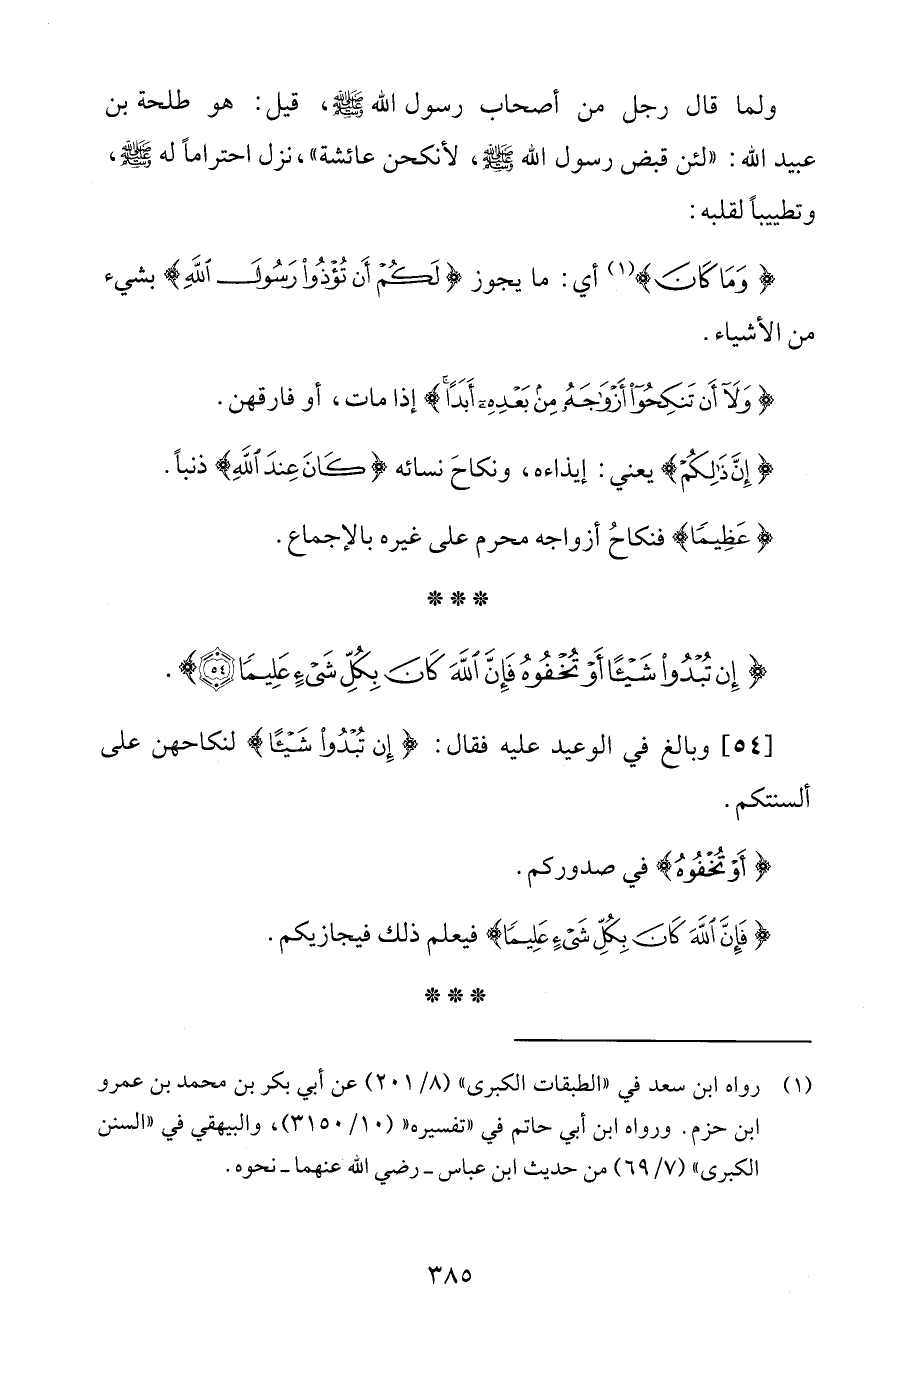 ولما قال رجل من أصحاب رسول الله ﷺ، قيل: هو طلحة بن
عبيد الله: «لئن قبض رسول الله ﷺ، لأنكحن عائشة»، نزل احتراماً له ﷺ،
وتطييباً لقلبه:
﴿وَمَا كَانَ﴾(١) أي: ما يجوز ﴿لَكُمْ أَن تُؤْذُوا۟ رَسُولَ ٱللَّهِ﴾ بشيء
من الأشياء.
﴿وَلَآ أَن تَنكِحُوٓا۟ أَزْوَٰجَهُۥ مِنۢ بَعْدِهِۦٓ أَبَدًا ۚ﴾ إذا مات، أو فارقهن.
﴿إِنَّ ذَٰلِكُمْ﴾ يعني: إيذاءه، ونكاحَ نسائه ﴿كَانَ عِندَ ٱللَّهِ﴾ ذنباً.
﴿عَظِيمًا﴾ فنكاحُ أزواجه محرم على غيره بالإجماع.
* * *
﴿إِن تُبْدُوا۟ شَيْـًٔا أَوْ تُخْفُوهُ فَإِنَّ ٱللَّهَ كَانَ بِكُلِّ شَىْءٍ عَلِيمًا ٥٤﴾.
[٥٤] وبالغ في الوعيد عليه فقال: ﴿إِن تُبْدُوا۟ شَيْـًٔا﴾ لنكاحهن على
ألسنتكم.
﴿أَوْ تُخْفُوهُ﴾ في صدوركم.
﴿فَإِنَّ ٱللَّهَ كَانَ بِكُلِّ شَىْءٍ عَلِيمًا﴾ فيعلم ذلك فيجازيكم.
* * *
(١) رواه ابن سعد في «الطبقات الكبرى» (٨/ ٢٠١) عن أبي بكر بن محمد بن عمرو
ابن حزم. ورواه ابن أبي حاتم في «تفسيره» (١٠/ ٣١٥٠)، والبيهقي في «السنن
الكبرى» (٧/ ٦٩) من حديث ابن عباس ـ رضي الله عنهما ـ نحوه.
٣٨٥